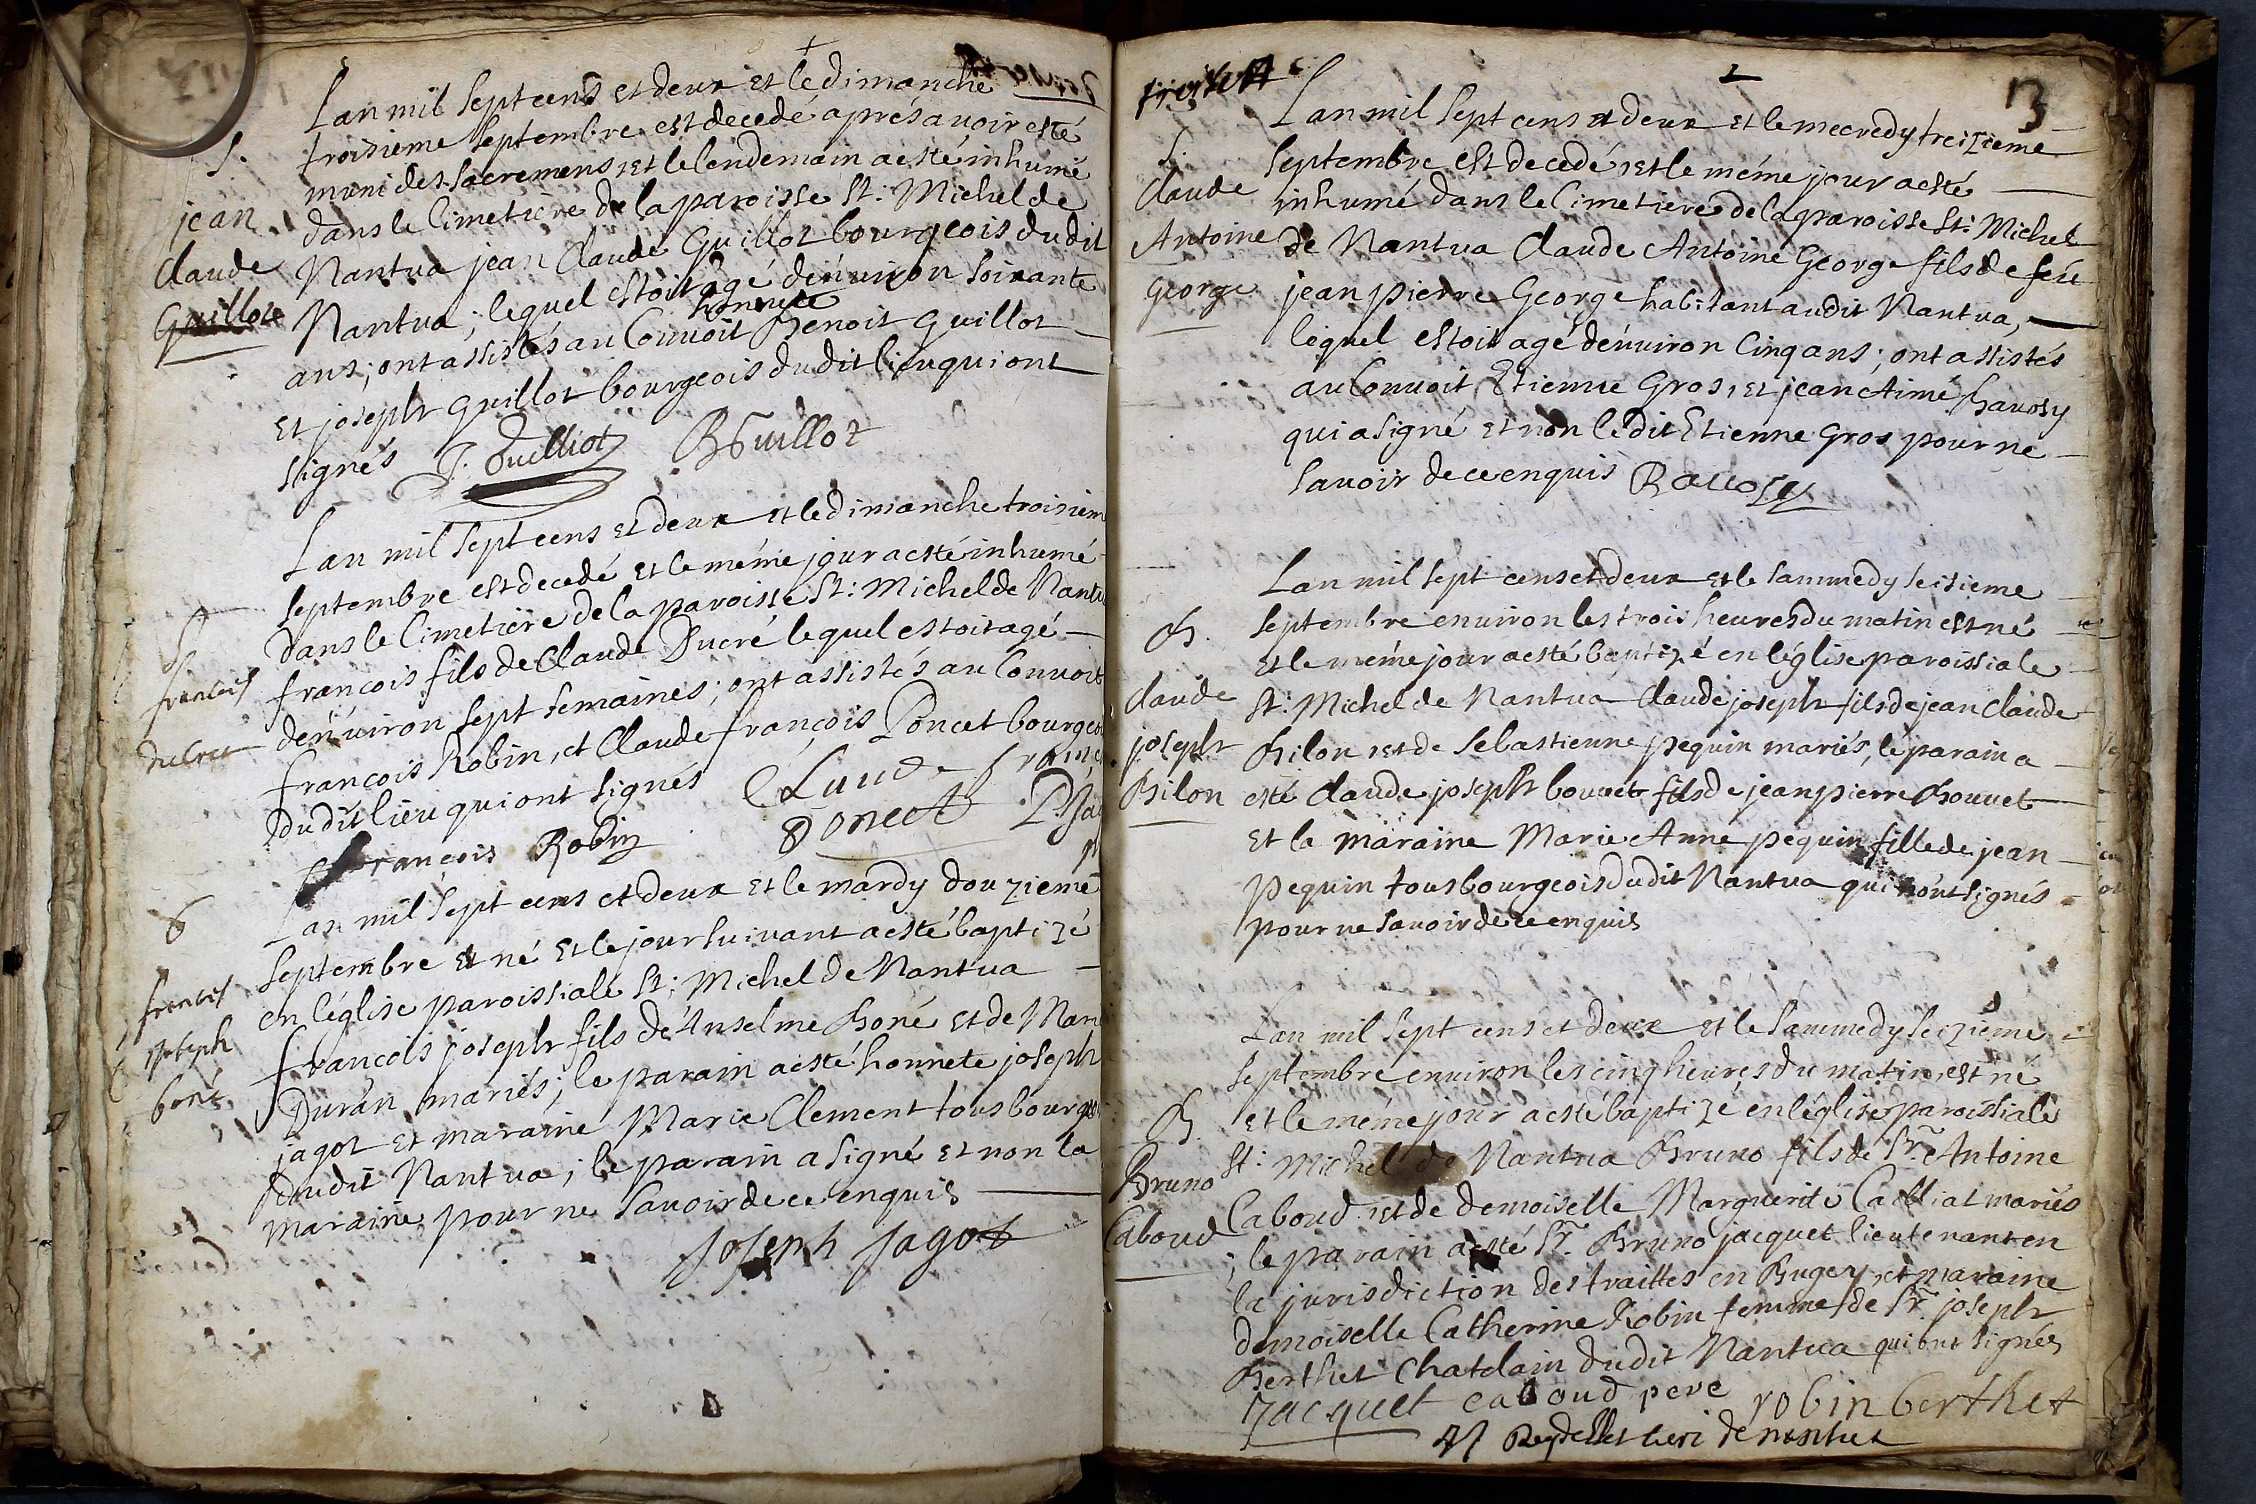 Lan mil Sept cens et deux et le dimanche
troisieme Septembre est decedé aprés auoir esté
muni des Sacremens, et le lendemain a esté inhumé
dans le Cimetiere de la paroisse St: Michel de
Nantua jean Claude Guillot bourgeois dudit
Nantua; lequel estoit agé denuiron soixante
ans; ont assistés au Conuoit honnete Benoit Guillot
et joseph Guillot bourgeois dudit lieu qui ont
signés
J. Guilliot BGuillot
S.
jean
Claude
Guillot
Lan mil Sept cens et deux et le dimanche troisiem
Septembre est decedé et le méme jour a esté inhumé
dans le Cimetiere de la paroisse St: Michel de Nantu
françois fils de Claude Ducré lequel estoit agé
denuiron Sept Semaines; ont assistés au Conuoit
françois Robin, et Claude françois Poncet bourgeo
dudit lieu qui ont signés
françois Robin
Claude franc
Poncet
S
francois
ducret
Lan mil Sept cens et deux et le mardy douzieme
Septembre est né et le jour suiuant a esté baptizé
en léglise paroissiale St: Michel de Nantua
françois joseph fils de Anselme Boné et de Mari
Duran mariés; le parain a esté honnete joseph
jagot et maraine Marie Clement tous bourgeo
dudit Nantua; le parain a signé et non la
maraine pour ne sauoir de ce enquis
joseph jagot
B
francois
joseph
boné
treise
13
Lan mil Sept cens et deux et le mecredy treizieme
Septembre est decedé, et le méme jour a esté
inhumé dans le Cimetiere de la paroisse St: Michel
de Nantua Claude Antoine George fils de feu
jean pierre George habitant audit Nantua,
lequel estoit agé denuiron Cinq ans; ont assistés
au Conuoit Etienne Gros, et jean Aimé Rauosy
qui a signé et non ledit Etienne Gros pour ne
sauoir de ce enquis Rauosy
S.
Claude
Antoine
George
Lan mil sept cens et deux et le Sammedy Seisieme
Septembre enuiron les trois heures du matin est né
et le méme jour a esté baptizé en léglise paroissiale
St: Michel de Nantua Claude joseph fils de jean Claude
Bilon et de Sebastienne pequin mariés, le parain a
esté Claude joseph bouuet fils de jean pierre Bouuet
et la maraine Marie Anne pequin fille de jean
pequin tous bourgeois dudit Nantua qui nont signés
pour ne sauoir de ce enquis
B.
Claude
joseph
Bilon
Lan mil Sept cens et deux et le Sammedy Seizieme
Septembre enuiron les cinq heures du matin, est né
et le méme jour a esté baptizé en léglise paroissiale
St: Michel de Nantua Bruno fils de Sr. Antoine
Caboud et de demoiselle Marguerite mariés
; le parain a esté Sr. Bruno jacquet lieutenant en
la jurisdiction des traittes en Bugey, et maraine
demoiselle Catherine Robin femme de Sr. joseph
Berthet Chatelain dudit Nantua qui ont signés
Jacquet caboud pere robin berthet
Reydellet curé de nantua
B.
Bruno
Caboud